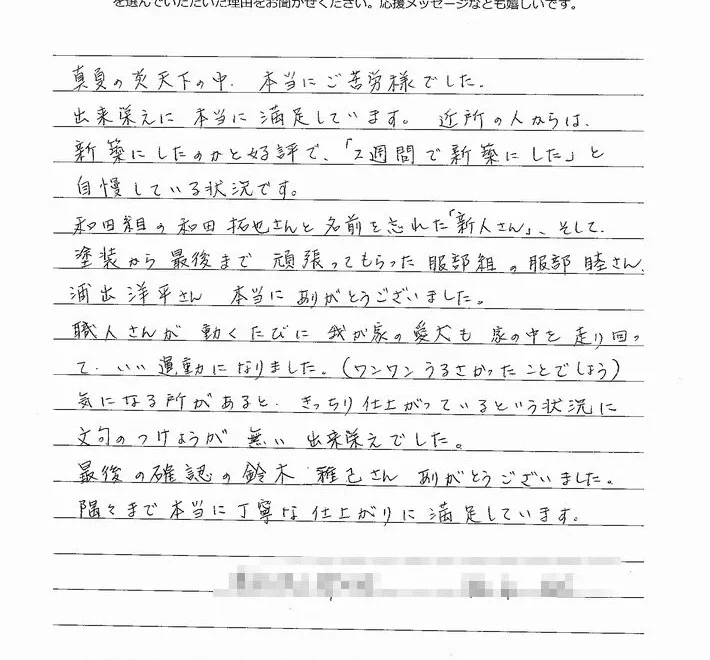 を選んでいただいた理由をお聞かせください。応援メッセージなども嬉しいです。
真夏の炎天下の中、本当にご苦労様でした。
出来栄えに 本当に 満足しています。 近所の人からは、
新築にしたのかと好評で、「2週間で新築にした」と
自慢している状況です。
和田組の和田 拓也さんと名前を忘れた「新人さん」、そして、
塗装から最後まで 頑張ってもらった服部組の服部 睦さん、
浦出 洋平さん 本当にありがとうございました。
職人さんが 動くたびに 我が家の愛犬も 家の中を走り回っ
て、いい運動になりました。(ワンワンうるさかったことでしょう)
気になる所があると、きっちり仕上がっているという状況に
文句のつけようが 無い 出来栄えでした。
最後の確認の鈴木 雅己さん ありがとうございました。
隅々まで本当に丁寧な仕上がりに満足しています。